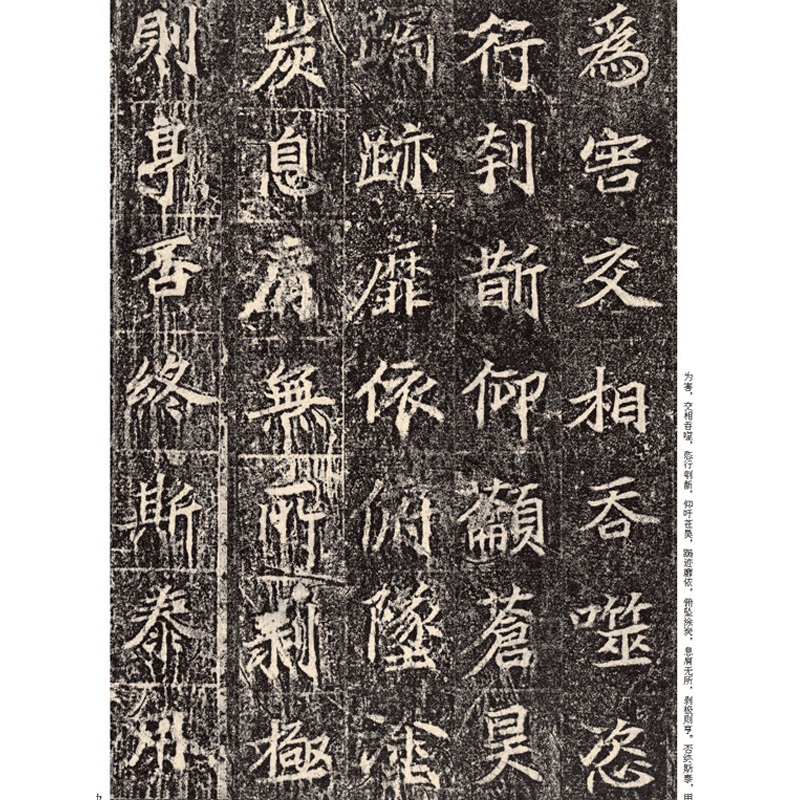 為害交相吞噬恣
行刳斮仰龥蒼昊
跼跡靡依俯墜塗
炭息肩無所剥極
則亨否終斯泰用
为害，交相吞噬，恣行刳斮，仰吁苍昊，跼迹靡依，俯坠涂炭，息肩无所，剥极则亨。否终斯泰，用